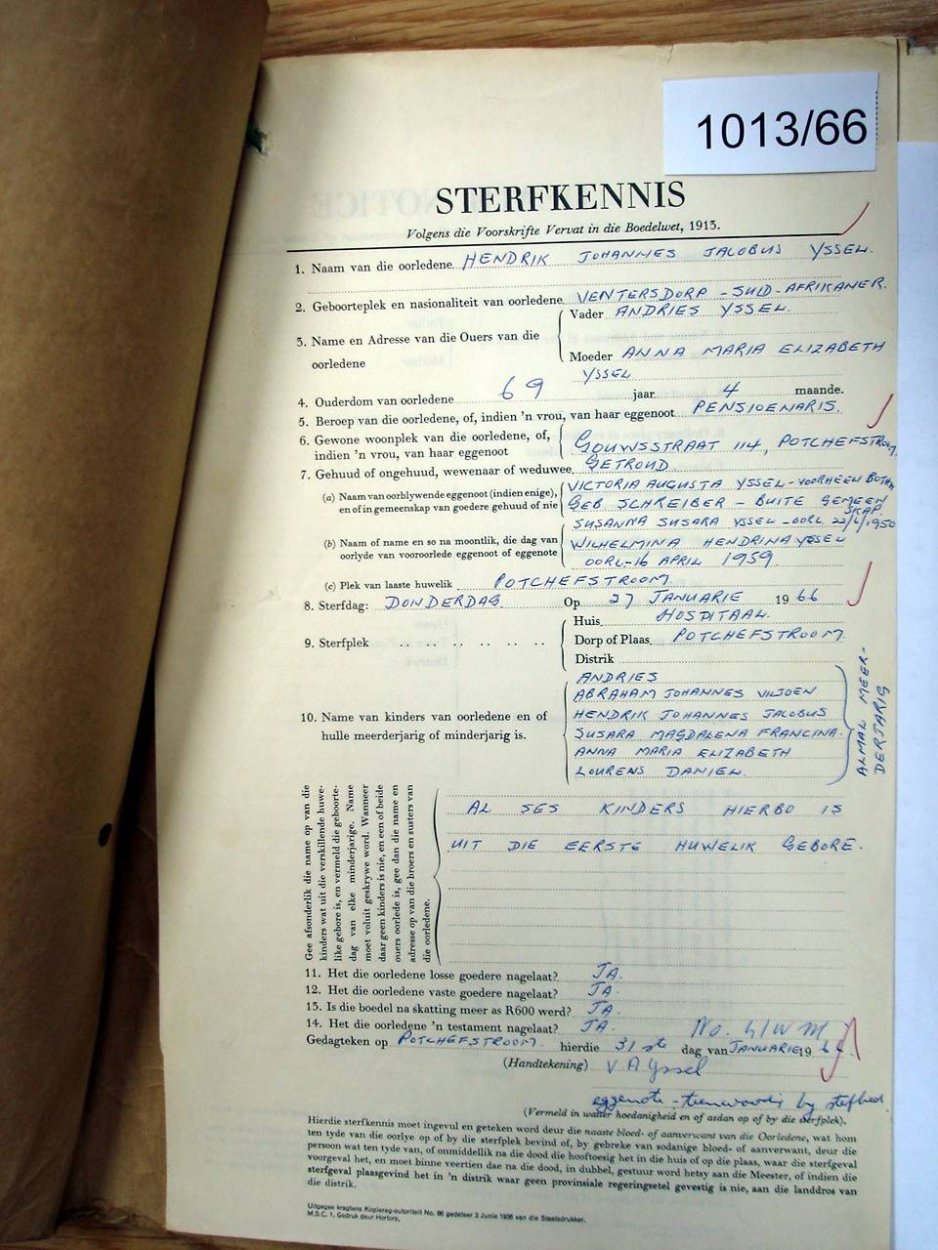 1013/66
STERFKENNIS
Volgens die Voorskrifte Vervat in die Boedelwet, 1913.
1. Naam van die oorledene HENDRIK JOHANNES JACOBUS YSSEL.
2. Geboorteplek en nasionaliteit van oorledene VENTERSDORP - SUID-AFRIKANER.
3. Name en Adresse van die Ouers van die oorledene
Vader ANDRIES YSSEL.
Moeder ANNA MARIA ELIZABETH
YSSEL
4. Ouderdom van oorledene 69 jaar 4 maande.
5. Beroep van die oorledene, of, indien 'n vrou, van haar eggenoot PENSIOENARIS.
6. Gewone woonplek van die oorledene, of,
indien 'n vrou, van haar eggenoot
GOUWSSTRAAT 114, POTCHEFSTROOM
7. Gehuud of ongehuud, wewenaar of weduwee GETROUD
(a) Naam van oorblywende eggenoot (indien enige),
en of in gemeenskap van goedere gehuud of nie
VICTORIA AUGUSTA YSSEL - VOORHEEN BOTHA
GEB SCHREIBER - BUITE GEMEEN
SKAP
(b) Naam of name en so na moontlik, die dag van
oorlyde van vooroorlede eggenoot of eggenote
SUSANNA SUSARA YSSEL - OORL 22/6/1950
WILHELMINA HENDRINA YSSEL
OORL - 16 APRIL 1959.
(c) Plek van laaste huwelik POTCHEFSTROOM.
8. Sterfdag: DONDERDAG. Op 27 JANUARIE 1966
9. Sterfplek
Huis HOSPITAAL.
Dorp of Plaas POTCHEFSTROOM
Distrik
10. Name van kinders van oorledene en of
hulle meerderjarig of minderjarig is.
ANDRIES
ABRAHAM JOHANNES VILJOEN
HENDRIK JOHANNES JACOBUS
SUSARA MAGDALENA FRANCINA.
ANNA MARIA ELIZABETH
LOURENS DANIEL.
ALMAL MEER-
DERJARIG
Gee afsonderlik die name op van die
kinders wat uit die verskillende huwe-
like gebore is, en vermeld die geboorte-
dag van elke minderjarige. Name
moet voluit geskrywe word. Wanneer
daar geen kinders is nie, en een of beide
ouers oorlede is, gee dan die name en
adresse op van die broers en susters van
die oorledene.
AL SES KINDERS HIERBO IS
UIT DIE EERSTE HUWELIK GEBORE.
11. Het die oorledene losse goedere nagelaat? JA.
12. Het die oorledene vaste goedere nagelaat? JA.
13. Is die boedel na skatting meer as R600 werd? JA.
14. Het die oorledene 'n testament nagelaat? JA.
Gedagteken op POTCHEFSTROOM. hierdie 31ste dag van JANUARIE 1966.
(Handtekening) V A Yssel
eggenote - teenwoordig by sterfbed.
(Vermeld in watter hoedanigheid en of asdan op of by die sterfplek).
Hierdie sterfkennis moet ingevul en geteken word deur die naaste bloed- of aanverwant van die Oorledene, wat hom
ten tyde van die oorlye op of by die sterfplek bevind of, by gebreke van sodanige bloed- of aanverwant, deur die
persoon wat ten tyde van, of onmiddelik na die dood die hooftoesig het in die huis of op die plaas, waar die sterfgeval
voorgeval het, en moet binne veertien dae na die dood, in dubbel, gestuur word hetsy aan die Meester, of indien die
sterfgeval plaasgevind het in 'n distrik waar geen provinsiale regeringsetel gevestig is nie, aan die landdros van
die distrik.
Uitgegee kragtens Kopiereg-outoriteit No. 86 gedateer 3 Junie 1936 van die Staatsdrukker.
M.S.C. 1. Gedruk deur Hortors,